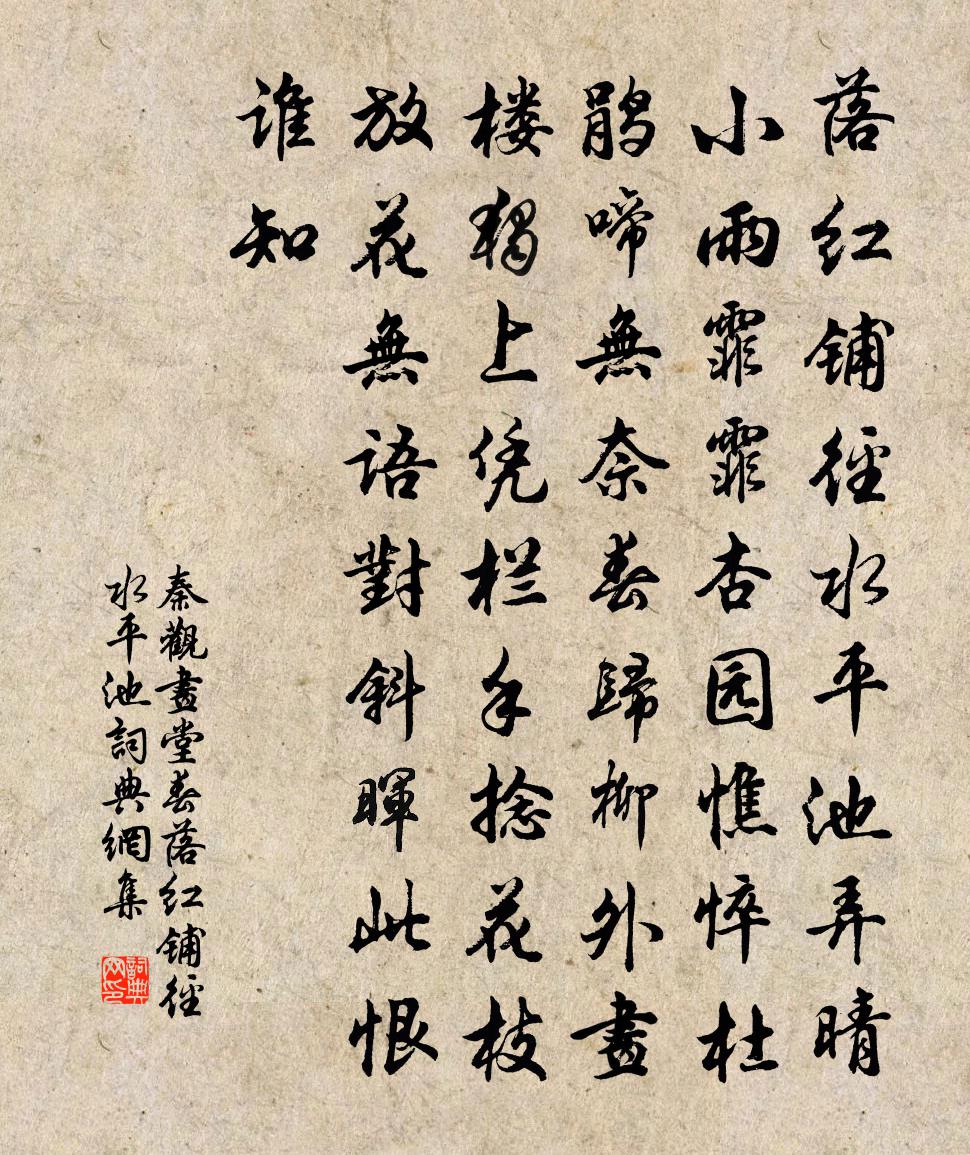 落红铺径水平池弄晴
小雨霏霏杏园憔悴杜
鹃啼無奈春歸柳外畫
楼獨上凭栏手捻花枝
放花無語對斜暉此恨
谁知
秦觀畫堂春落红铺徑
水平池詞典網集
詞典
网印